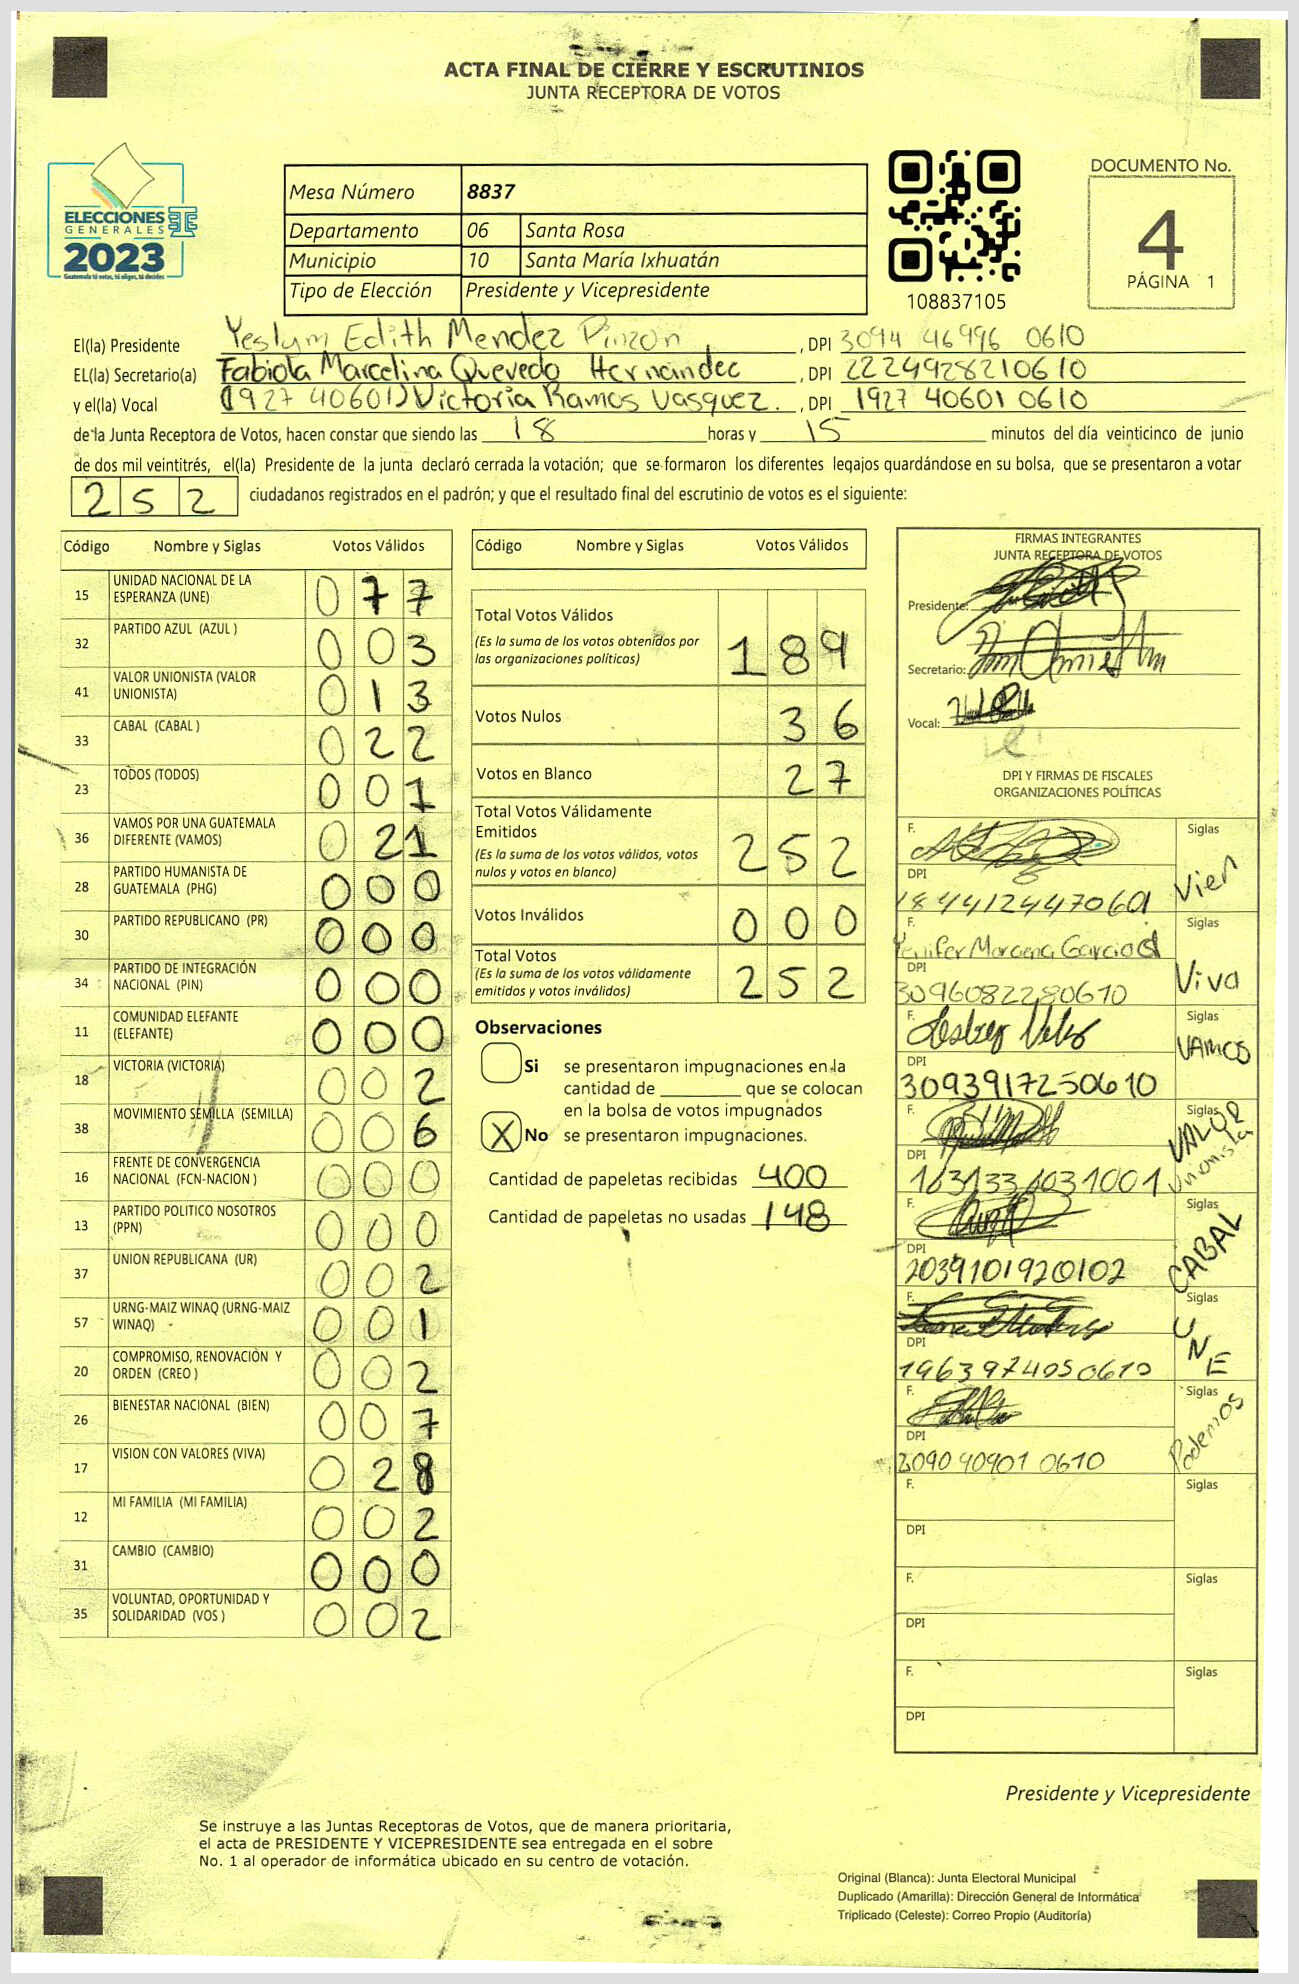 ACTA FINAL DE CIERRE Y ESCRUTINIOS
JUNTA RECEPTORA DE VOTOS
ELECCIONES
GENERALES
2023
Guatemala tú votas, tú eliges, tú decides
Mesa Número 8837
Departamento 06 Santa Rosa
Municipio 10 Santa María Ixhuatán
Tipo de Elección Presidente y Vicepresidente
108837105
DOCUMENTO No.
4
PÁGINA 1
El(la) Presidente Yeslym Edith Mendez Pinzon, DPI 3094 46996 0610
EL(la) Secretario(a) Fabiola Marcelina Quevedo Hernandec, DPI 2224928210610
y el(la) Vocal (1927 40601) Victoria Ramos Vasquez., DPI 1927 40601 0610
de la Junta Receptora de Votos, hacen constar que siendo las 18 horas y 15 minutos del día veinticinco de junio
de dos mil veintitrés, el(la) Presidente de la junta declaró cerrada la votación; que se formaron los diferentes legajos quardándose en su bolsa, que se presentaron a votar
252 ciudadanos registrados en el padrón; y que el resultado final del escrutinio de votos es el siguiente:
Código Nombre y Siglas Votos Válidos
15 UNIDAD NACIONAL DE LA ESPERANZA (UNE) 077
32 PARTIDO AZUL (AZUL ) 003
41 VALOR UNIONISTA (VALOR UNIONISTA) 013
33 CABAL (CABAL ) 022
23 TODOS (TODOS) 001
36 VAMOS POR UNA GUATEMALA DIFERENTE (VAMOS) 021
28 PARTIDO HUMANISTA DE GUATEMALA (PHG) 000
30 PARTIDO REPUBLICANO (PR) 000
34 PARTIDO DE INTEGRACIÓN NACIONAL (PIN) 000
11 COMUNIDAD ELEFANTE (ELEFANTE) 000
18 VICTORIA (VICTORIA) 002
38 MOVIMIENTO SEMILLA (SEMILLA) 006
16 FRENTE DE CONVERGENCIA NACIONAL (FCN-NACION ) 000
13 PARTIDO POLITICO NOSOTROS (PPN) 000
37 UNION REPUBLICANA (UR) 002
57 URNG-MAIZ WINAQ (URNG-MAIZ WINAQ) 001
20 COMPROMISO, RENOVACIÓN Y ORDEN (CREO ) 002
26 BIENESTAR NACIONAL (BIEN) 007
17 VISION CON VALORES (VIVA) 028
12 MI FAMILIA (MI FAMILIA) 002
31 CAMBIO (CAMBIO) 000
35 VOLUNTAD, OPORTUNIDAD Y SOLIDARIDAD (VOS ) 002
Código Nombre y Siglas Votos Válidos
Total Votos Válidos 189
(Es la suma de los votos obtenidos por las organizaciones políticas)
Votos Nulos 36
Votos en Blanco 27
Total Votos Válidamente Emitidos 252
(Es la suma de los votos válidos, votos nulos y votos en blanco)
Votos Inválidos 000
Total Votos 252
(Es la suma de los votos válidamente emitidos y votos inválidos)
Observaciones
Si se presentaron impugnaciones en la
cantidad de ________ que se colocan
en la bolsa de votos impugnados
X No se presentaron impugnaciones.
Cantidad de papeletas recibidas 400
Cantidad de papeletas no usadas 148
FIRMAS INTEGRANTES
JUNTA RECEPTORA DE VOTOS
Presidente:
Secretario:
Vocal:
DPI Y FIRMAS DE FISCALES
ORGANIZACIONES POLÍTICAS
F. Siglas Vien
DPI 1844124470601
F. Yenifer Morgena Garcia Siglas Viva
DPI 3096082280610
F. Siglas VAMOS
DPI 3093917250610
F. Siglas VALOR Unionista
DPI 1631336031001
F. Siglas CABAL
DPI 2039101920102
F. Siglas UNE
DPI 1963974050610
F. Siglas Podemos
DPI 3090 40901 0610
F. Siglas
DPI
F. Siglas
DPI
F. Siglas
DPI
Presidente y Vicepresidente
Se instruye a las Juntas Receptoras de Votos, que de manera prioritaria,
el acta de PRESIDENTE Y VICEPRESIDENTE sea entregada en el sobre
No. 1 al operador de informática ubicado en su centro de votación.
Original (Blanca): Junta Electoral Municipal
Duplicado (Amarilla): Dirección General de Informática
Triplicado (Celeste): Correo Propio (Auditoría)